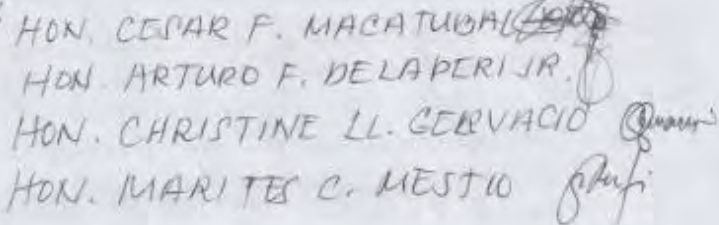 HON. CESAR F. MACATUBAL
HON. ARTURO F. DELAPERI JR.
HON. CHRISTINE LL. GERVACIO
HON. MARITES C. MESTIO